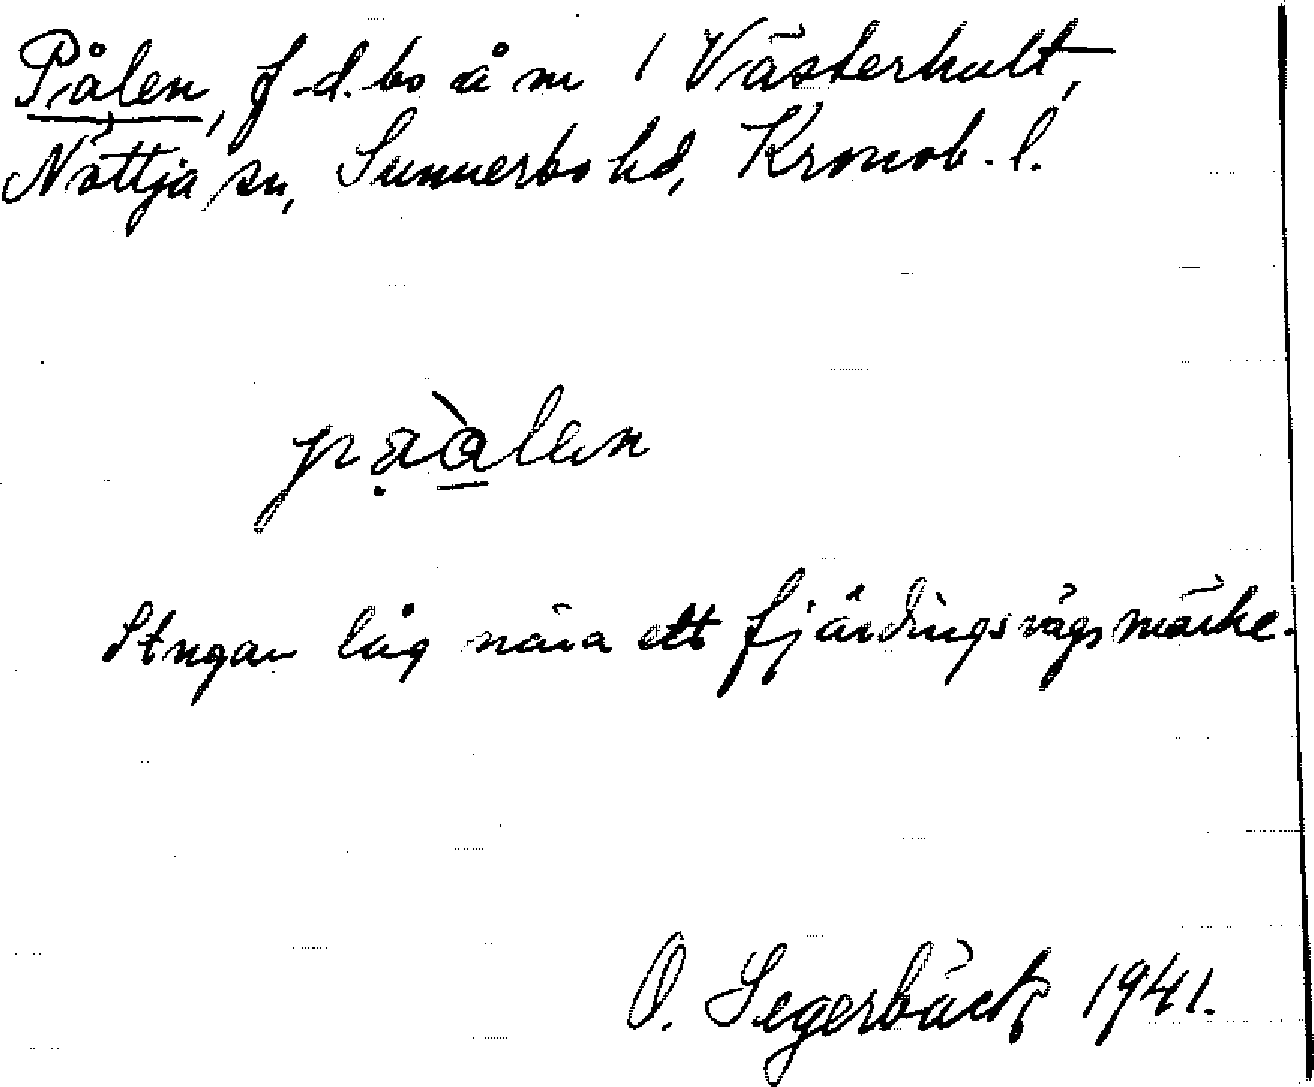 Pålen, f.d. bo å nr 1 Västerhult,
Nöttja sn, Sunnerbo hd, Kronob. l.
pạàlen
Stugan låg nära ett fjärdingsvägsmärke.
O. Segerbäck 1941.